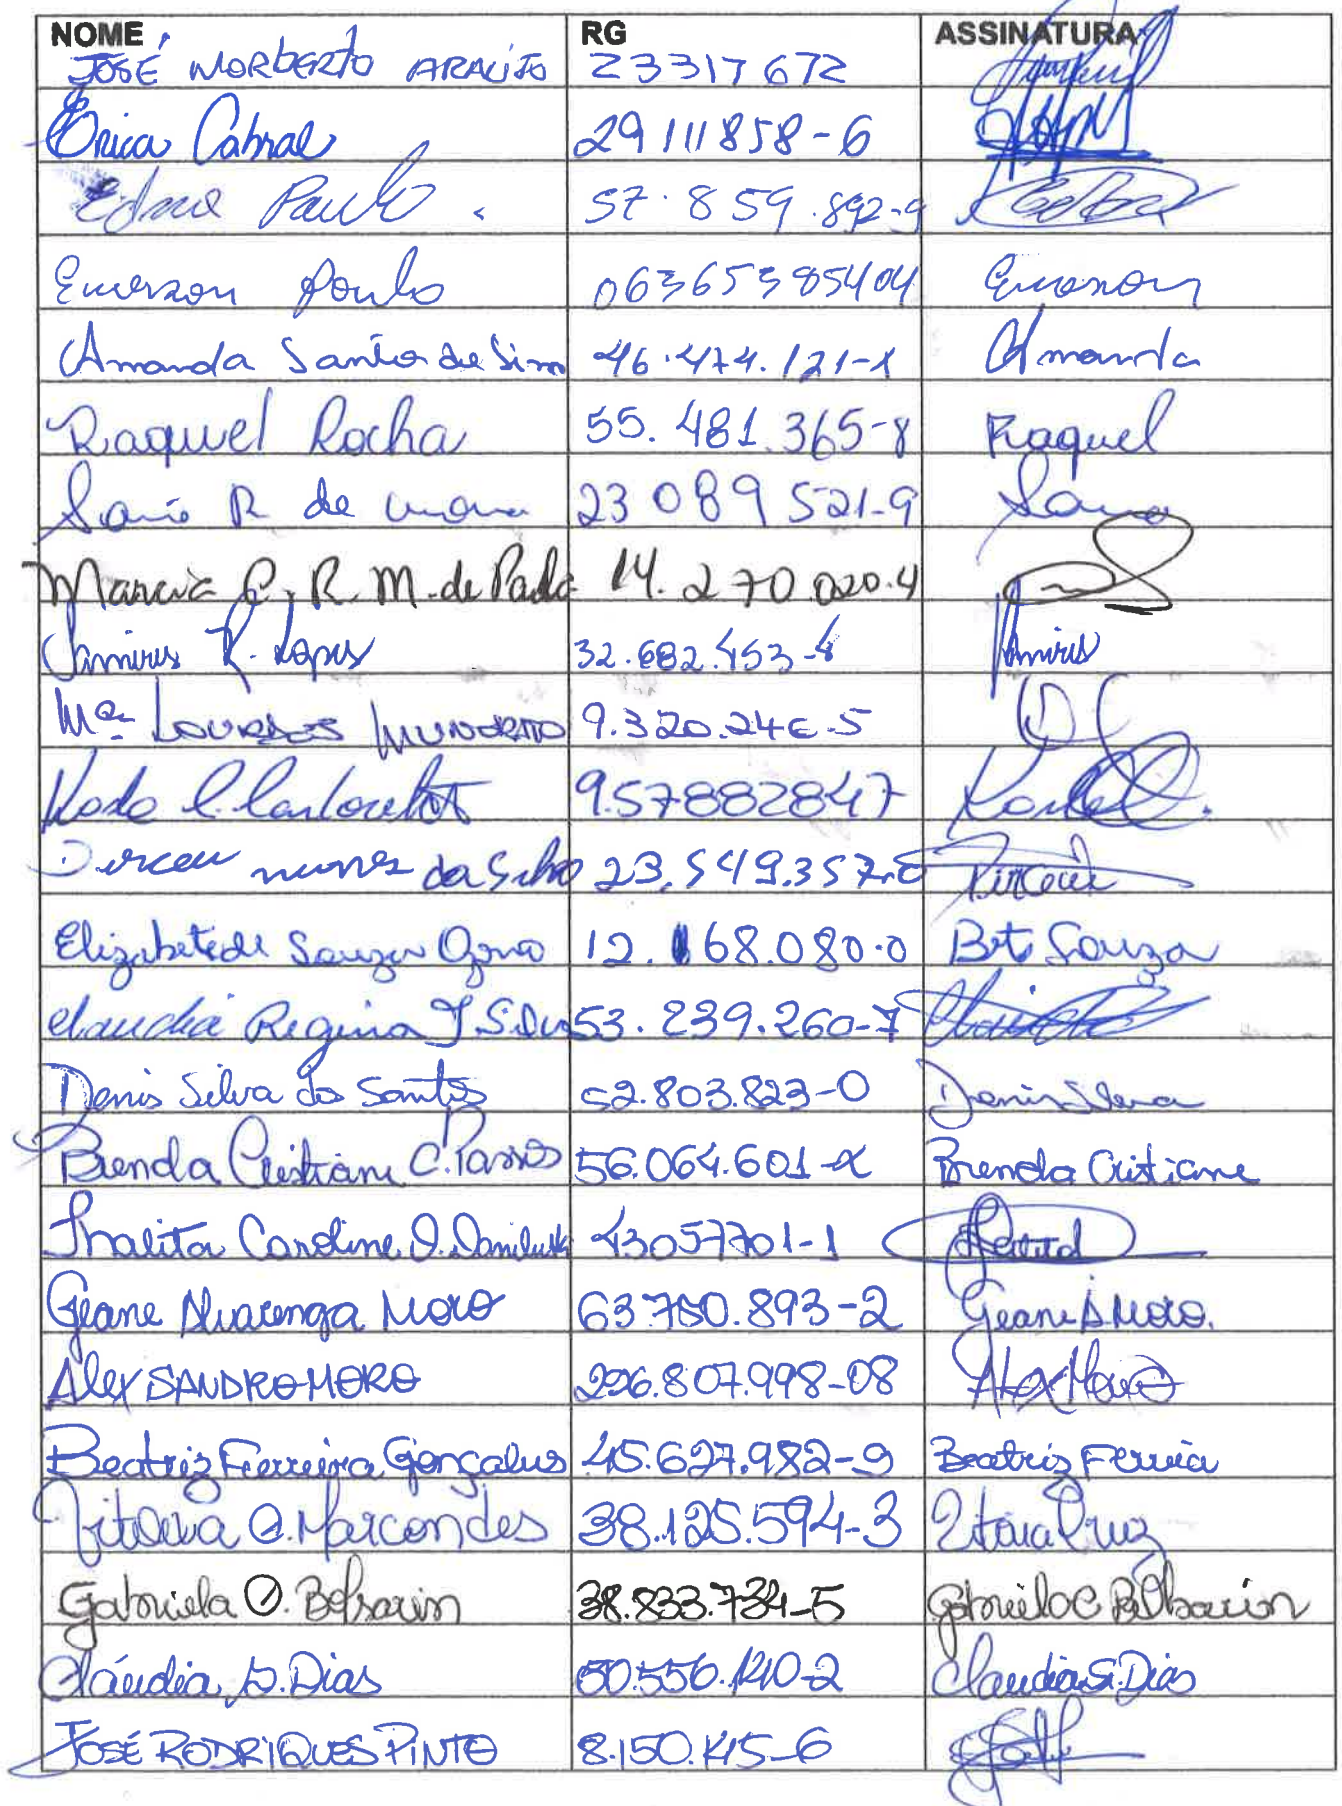 NOME RG ASSINATURA
JOSÉ NORBERTO ARAUJO 23317672
Erica Cabral 29111858-6
Edna Paulo 57.859.892-9
Emerson Paulo 06365385404 Emerson
Amanda Santos de 46.474.121-X Amanda
Raquel Rocha 55.481.365-8 Raquel
R de 23 089 521-9
Marcia C. R. M. de Paula 14.270.020.4
Tamiris R. Lopes 32.682.453-4 Tamiris
Mª LOURDES 9.320.246-5
9.57882847
Dirceu nunes da Silva 23.549.357-8 Dirceu
Elizabete de Souza 12.168.080-0 Bete Souza
Claudia Regina J. Silva 53.239.260-7
Denis Silva dos Santos 52.803.823-0 Denis Silva
Brenda Cristiane C. Passos 56.064.601-X Brenda Cristiane
Thalita Caroline D. 43057701-1
Geane Alvarenga Moro 63.750.893-2 Geane A Moro.
ALEXSANDRO MORO 296.807.998-08 Alex Moro
Beatriz Ferreira Gonçalves 45.627.982-9 Beatriz Ferreira
Vitória C. Marcondes 38.125.594-3 Vitória Cruz
Gabriela C. Belsarin 38.833.734-5 Gabriela C Belsarin
Cláudia S. Dias 50.556.140-2 Claudia S. Dias
JOSÉ RODRIGUES PINTO 8.150.415-6